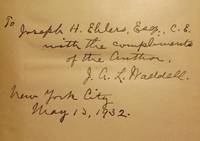 To Joseph H. Ehlers, Esq., C.E.
with the compliments
of the Author,
J. A. L. Waddell.
New York City
May 13, 1932.